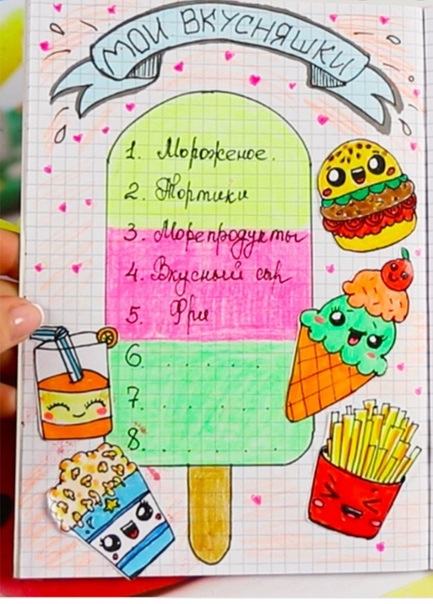 МОИ ВКУСНЯШКИ
1. Мороженое.
2. Тортики
3. Морепродукты
4. Вкусный сыр
5. Фри
6
7.
8.